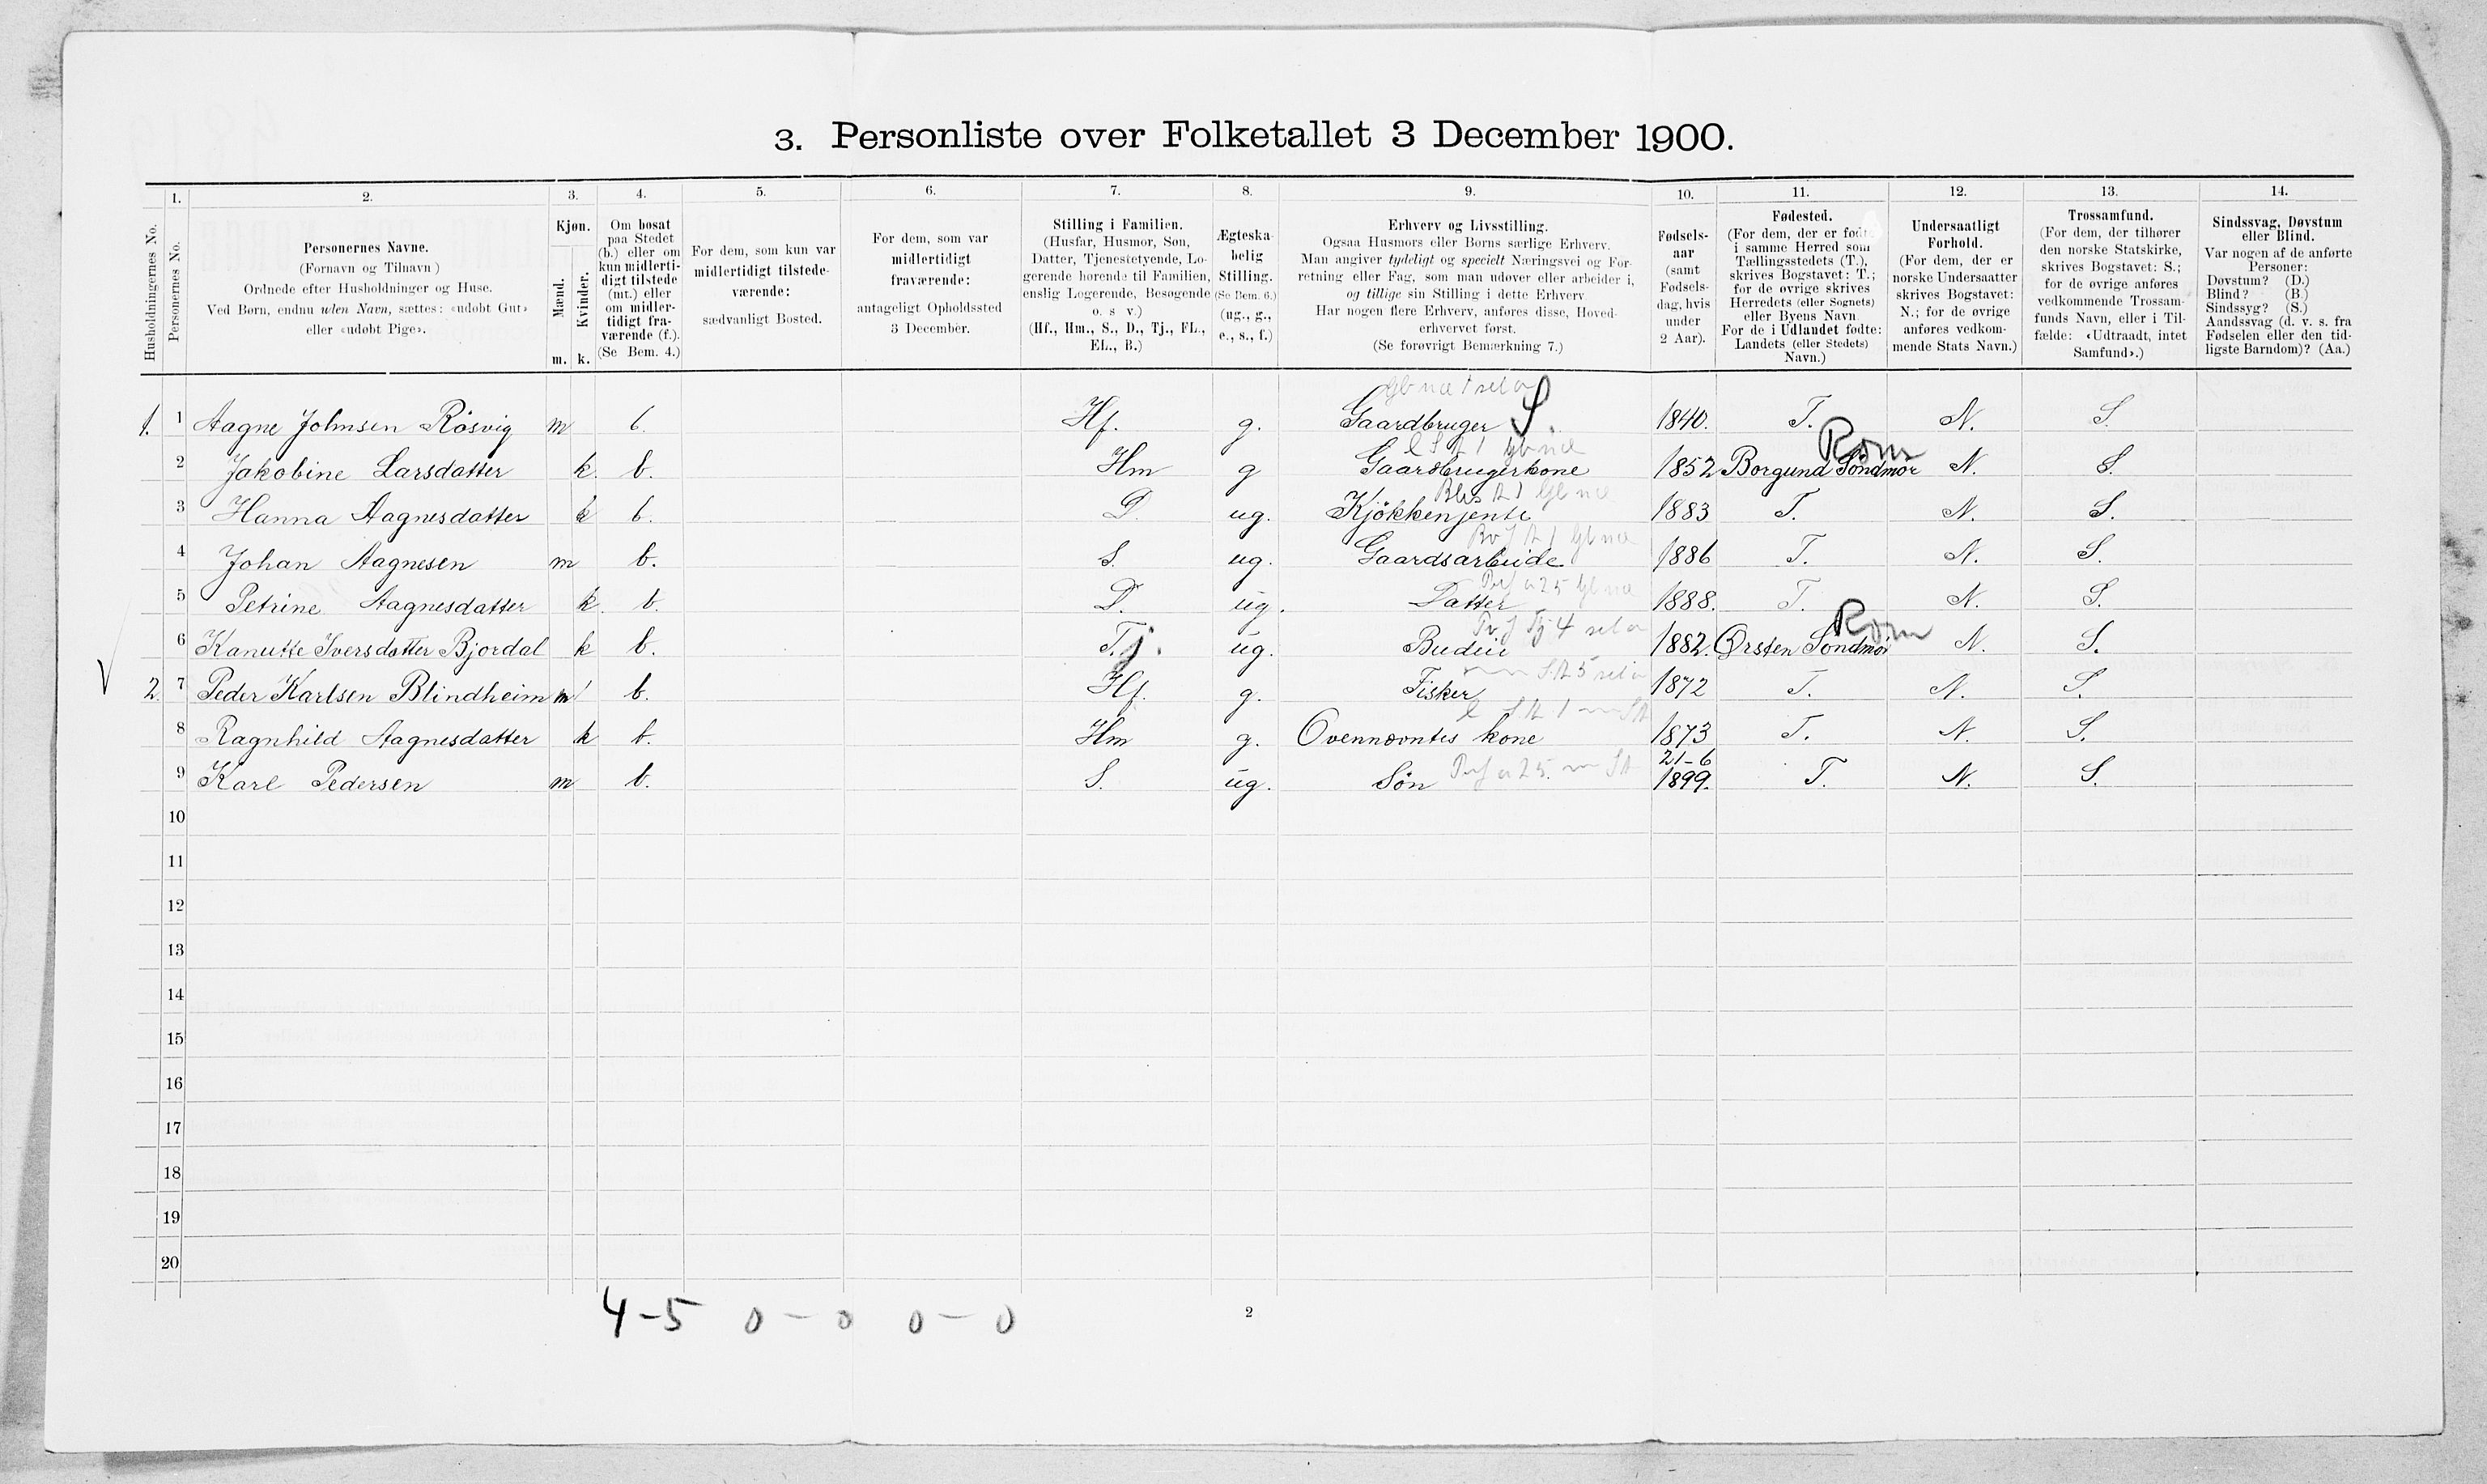 3. Personliste over Folketallet 3 December 1900.
1. 2. 3. 4. 5. 6. 7. 8. 9. 10. 11. 12. 13. 14.
Husholdningernes No.
Personernes No.
Personernes Navne.
(Fornavn og Tilnavn)
Ordnede efter Husholdninger og Huse.
Ved Børn, endnu uden Navn, sættes: «udøbt Gut»
eller «udøbt Pige».
Kjøn.
Mænd.
Kvinder.
m. k.
Om bosat
paa Stedet
(b.) eller om
kun midlerti-
digt tilstede
(mt.) eller
om midler-
tidigt fra-
værende (f.).
(Se Bem. 4.)
For dem, som kun var
midlertidigt tilstede-
værende:
sædvanligt Bosted.
For dem, som var
midlertidigt
fraværende:
antageligt Opholdssted
3 December.
Stilling i Familien.
(Husfar, Husmor, Søn,
Datter, Tjenestetyende, Lo-
gerende hørende til Familien,
enslig Logerende, Besøgende
o. s v.)
(Hf., Hm., S., D., Tj., FL.,
EL., B.)
Ægteska-
belig
Stilling.
(Se Bem. 6.)
(ug., g.,
e., s., f.)
Erhverv og Livsstilling.
Ogsaa Husmors eller Børns særlige Erhverv.
Man angiver tydeligt og specielt Næringsvei og For-
retning eller Fag, som man udøver eller arbeider i,
og tillige sin Stilling i dette Erhverv
Har nogen flere Erhverv, anføres disse, Hoved-
erhvervet først.
(Se forøvrigt Bemærkning 7.)
Fødsels-
aar
(samt
Fødsels-
dag, hvis
under
2 Aar).
Fødested.
(For dem, der er født
i samme Herred som
Tællingsstedets (T.),
skrives Bogstavet: T.;
for de øvrige skrives
Herredets (eller Sognets)
eller Byens Navn.
For de i Udlandet fødte:
Landets (eller Stedets)
Navn.)
Undersaatligt
Forhold.
(For dem, der er
norske Undersaatter
skrives Bogstavet:
N.; for de øvrige
anføres vedkom-
mende Stats Navn.)
Trossamfund.
(For dem, der tilhører
den norske Statskirke,
skrives Bogstavet: S.;
for de øvrige anføres
vedkommende Trossam-
funds Navn, eller i Til-
fælde: «Udtraadt, intet
Samfund».)
Sindssvag, Døvstum
eller Blind.
Var nogen af de anførte
Personer:
Døvstum? (D.)
Blind? (B.)
Sindssyg? (S.)
Aandssvag (d. v. s. fra
Fødselen eller den tid-
ligste Barndom)? (Aa.)
1. 1 Aagne Johnsen Rösvig m b. Hf. g. Gaardbruger S. 1840. T. N. S.
Rom
2 Jakobine Larsdatter k. b. Hm g Gaardbrugerkone 1852 Borgund Söndmör N. S.
3 Hanna Aagnesdatter k b. D. ug. Kjökkenjente 1883 T. N. S.
4 Johan Aagnesen m b. S. ug. Gaardsarbeide 1886 T. N. S.
5 Petrine Aagnesdatter k. b. D. ug. Datter 1888. T. N. S.
Rom
6 Kanutte Iversdatter Bjordal k b. Tj. ug. Budeie 1882. Ørsten Söndmör N. S.
2. 7 Peder Karlsen Blindheim m b. Hf. g. Fisker 1872 T. N. S.
8 Ragnhild Aagnesdatter k b. Hm g. Ovennævntes kone 1873 T. N. S.
21-6
9 Karl Pedersen m b. S. ug. Sön 1899. T. N. S.
10
11
12
13
14
15
16
17
18
19
20
4-5 0-0 0-0
2